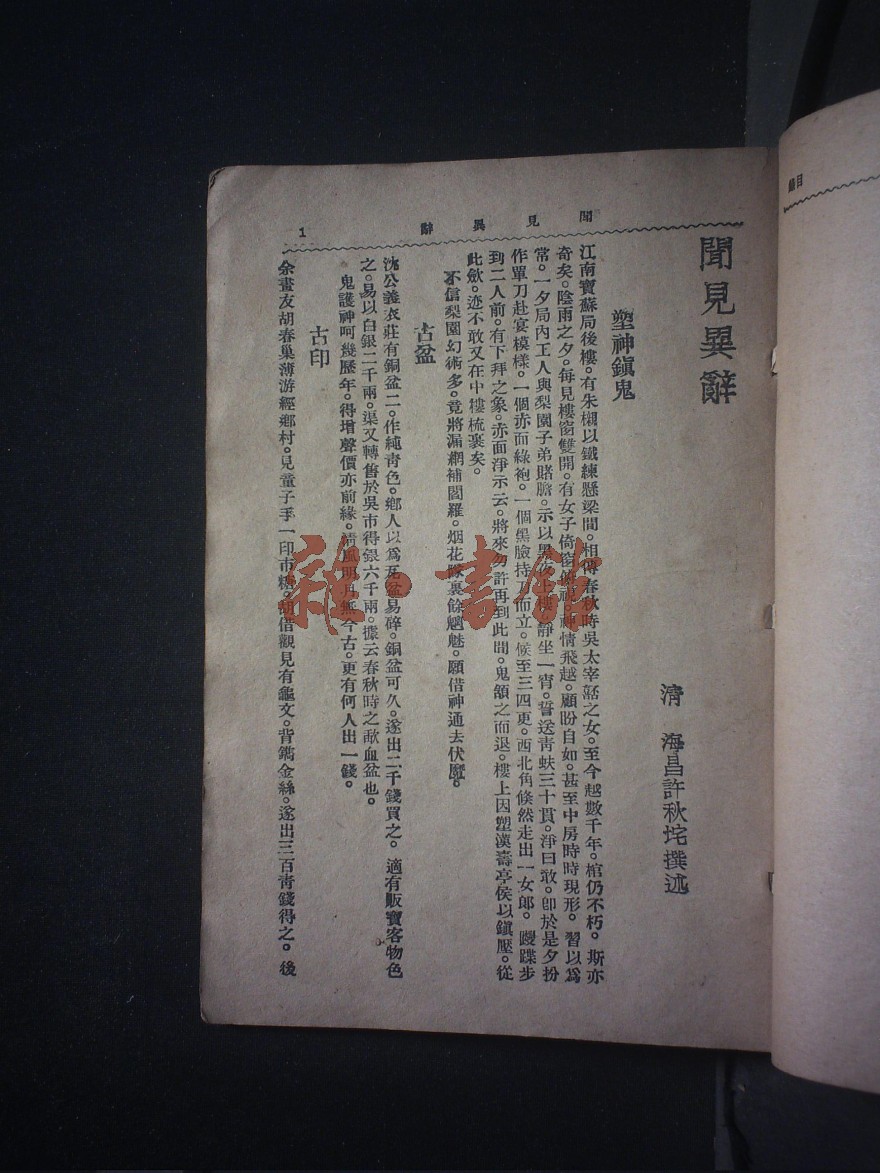 目錄
聞見異辭
1
聞見異辭
清 海昌許秋垞撰述
塑神鎮鬼
江南寶蘇局後樓。有朱櫬以鐵練懸梁間。相傳春秋時吳太宰嚭之女。至今越數千年。棺仍不朽。斯亦
奇矣。陰雨之夕。每見樓窗雙開。有女子倚窗俯視。神情飛越。顧盼自如。甚至中房時時現形。習以爲
常。一夕局內工人與梨園子弟賭膽。示以黑夜上樓。靜坐一宵。誓送靑蚨三十貫。淨曰敢。卽於是夕扮
作單刀赴宴模樣。一個赤面綠袍。一個黑臉持刀而立。候至三四更。西北角倏然走出一女郎。躞蹀步
到二人前。有下拜之象。赤面淨示云。將來勿許再到此間。鬼頷之而退。樓上因塑漢壽亭侯以鎮壓。從
此歛迹不敢又在中樓梳裹矣。
不信梨園幻術多。竟將漏網補閻羅。烟花隊裏餘魑魅。願借神通去伏魔。
古盆
沈公義衣莊有銅盆二。作純靑色。鄕人以爲瓦盆易碎。銅盆可久。遂出二千錢買之。適有販寶客物色
之。易以白銀二千兩。渠又轉售於吳市得銀六千兩。據云春秋時之歃血盆也。
鬼護神呵幾歷年。得增聲價亦前緣。淸風明月無今古。更有何人出一錢。
古印
余畫友胡春巢薄游經鄕村。見童子手一印市糖。胡借觀見有龜文。背鐫金絲。遂出三百靑錢得之。後
雜·書館